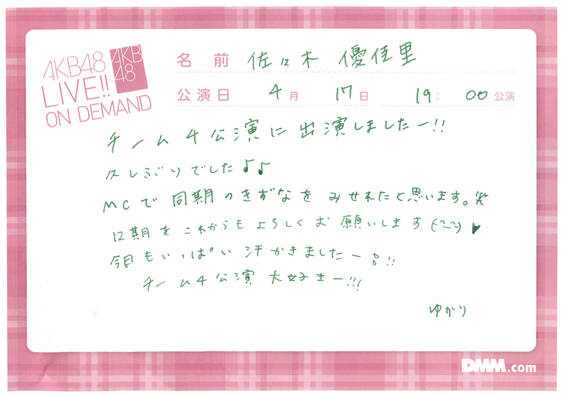 AKB48
LIVE!!
ON DEMAND
AKB
48
名前 佐々木 優佳里
公演日 4月 17日 19:00公演
チーム4公演に出演しましたー!!
久しぶりでした♪♪
MCで同期のきずなをみせれたと思います。笑
12期をこれからもよろしくお願いします (^-^)♥
今日もいっぱい汗かきましたー!!
チーム4公演 大好きー!!!
ゆかり
DMM.com